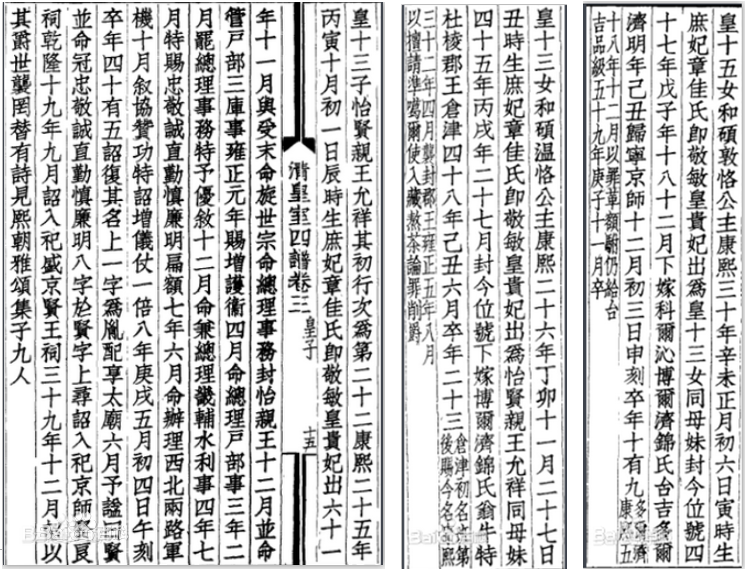 皇十三子怡賢親王允祥其初行次爲第二十二康熙二十五年
丙寅十月初一日辰時生庶妃章佳氏卽敬敏皇貴妃出六十一
清皇室四譜卷三 皇子 十五
年十一月與受末命旋世宗命總理事務封怡親王十二月並命
管戶部三庫事雍正元年賜增護衞四月命總理戶部事三年二
月罷總理事務特予優敘十二月命兼總理畿輔水利事四年七
月特賜忠敬誠直勤慎廉明扁額七年六月命辦理西北兩路軍
機十月敘協贊功特詔增儀仗一倍八年庚戌五月初四日午刻
卒年四十有五詔復其名上一字爲胤配享太廟六月予諡曰賢
並命冠忠敬誠直勤慎廉明八字於賢字上尋詔入祀京師賢良
祠乾隆十九年九月詔入祀盛京賢王祠三十九年十二月詔以
其爵世襲罔替有詩見熙朝雅頌集子九人
皇十三女和碩溫恪公主康熙二十六年丁卯十一月二十七日
丑時生庶妃章佳氏卽敬敏皇貴妃出爲怡賢親王允祥同母妹
四十五年丙戌年二十七月封今位號下嫁博爾濟錦氏翁牛特
杜棱郡王倉津四十八年己丑六月卒年二十三
倉津初名班第
後賜今名康熙
三十二年四月襲封郡王雍正五年八月
以擅請準噶爾使入藏熬茶論罪削爵
皇十五女和碩敦恪公主康熙三十年辛未正月初六日寅時生
庶妃章佳氏卽敬敏皇貴妃出爲皇十三女同母妹封今位號四
十七年戊子年十八十二月下嫁科爾沁博爾濟錦氏台吉多爾
濟明年己丑歸寧京師十二月初三日申刻卒年十有九
多爾濟
康熙五
十八年十二月以罪革額駙仍給台
吉品級五十九年庚子十一月卒